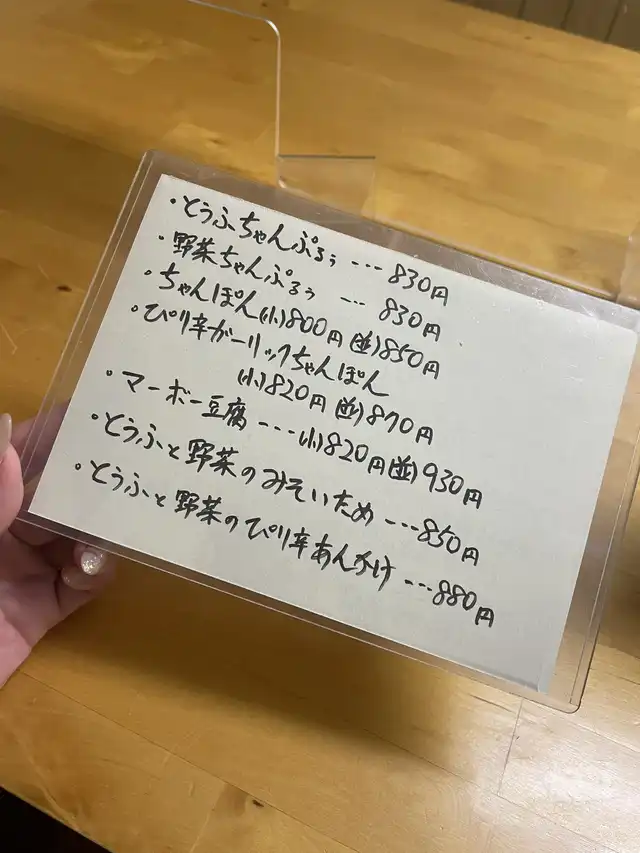 ・とうふちゃんぷるぅ --- 830円
・野菜ちゃんぷるぅ --- 830円
・ちゃんぽん(小)800円(並)850円
・ぴり辛ガーリックちゃんぽん
(小)820円(並)870円
・マーボー豆腐---(小)820円(並)930円
・とうふと野菜のみそいため---850円
・とうふと野菜のぴり辛あんかけ---880円